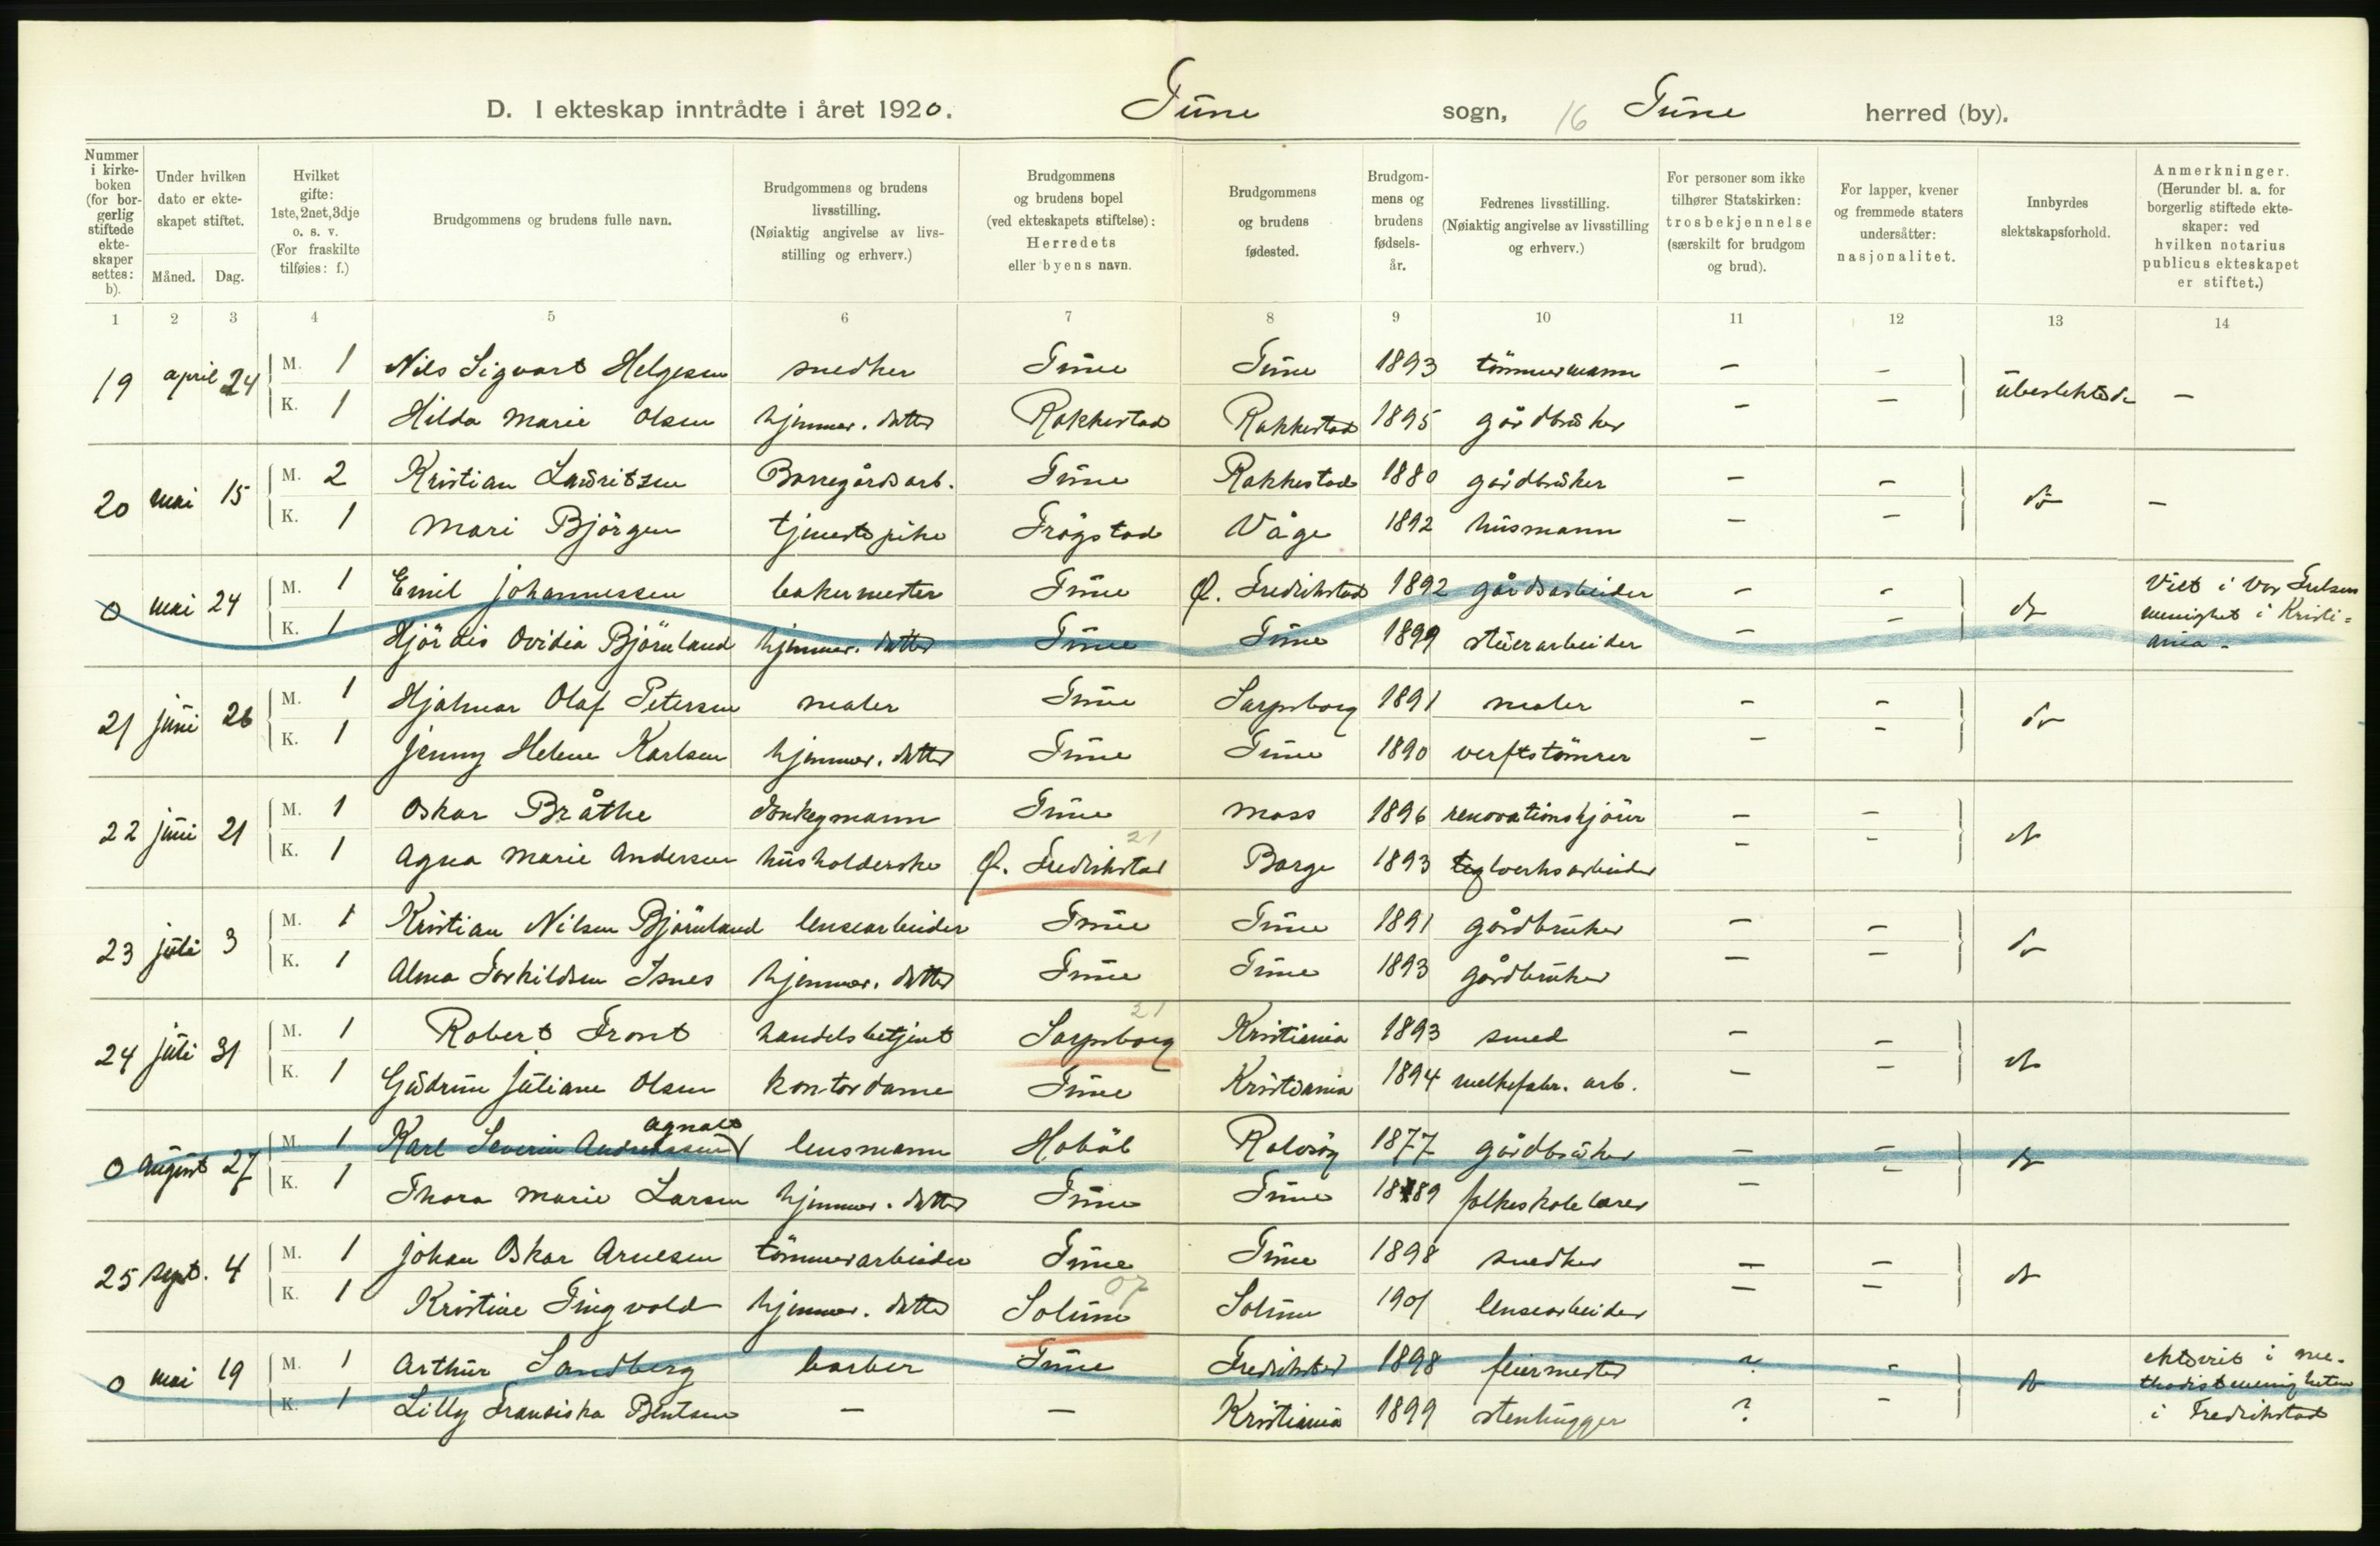 D. I ekteskap inntrådte i året 1920. Tune sogn, 16 Tune herred (by).
Nummer i kirke-boken (for bor-gerlig stiftede ekte-skaper settes: b).
Under hvilken dato er ekte-skapet stiftet.
Måned. Dag.
Hvilket gifte: 1ste, 2net, 3dje o. s. v. (For fraskilte tilføies: f.)
Brudgommens og brudens fulle navn.
Brudgommens og brudens livsstilling. (Nøiaktig angivelse av livs-stilling og erhverv.)
Brudgommens og brudens bopel (ved ekteskapets stiftelse): Herredets eller byens navn.
Brudgommens og brudens fødested.
Brudgom-mens og brudens fødsels-år.
Fedrenes livsstilling. (Nøiaktig angivelse av livsstilling og erhverv.)
For personer som ikke tilhører Statskirken: trosbekjennelse (særskilt for brudgom og brud).
For lapper, kvener og fremmede staters undersåtter: nasjonalitet.
Innbyrdes slektskapsforhold.
Anmerkninger. (Herunder bl. a. for borgerlig stiftede ekte-skaper: ved hvilken notarius publicus ekteskapet er stiftet.)
1 2 3 4 5 6 7 8 9 10 11 12 13 14
19 april 24 M. 1 Nils Sigvart Helgesen snedker Tune Tune 1893 tömmermann – – übeslektede –
K. 1 Hilda Marie Olsen hjemmev. datter Rakkestad Rakkestad 1895 gårdbrüker – –
20 mai 15 M. 2 Kristian Lauritzen Borregårdsarb. Tune Rakkestad 1880 gårdbrüker – – do –
K. 1 Mari Björgen tjenestepike Trögstad Våge 1892 hüsmann – –
0 mai 24 M. 1 Emil Johannessen bakermester Tune Ø. Fredrikstad 1892 gårdsarbeider – – do Viet i Vor Frelsers
K. 1 Hjördis Ovidia Björnland hjemmev. datter Tune Tune 1899 stüerarbeider – – menighet i Kristi=
ania.
21 juni 26 M. 1 Hjalmar Olaf Petersen maler Tune Sarpsborg 1891 maler – – do
K. 1 Jenny Helene Karlsen hjemmev. datter Tune Tune 1890 verftstömrer – –
22 juni 21 M. 1 Oskar Bråthe donkeymann Tune Moss 1896 renovationskjörer – – do
21
K. 1 Agna Marie Andersen hüsholderske Ø. Fredrikstad Borge 1893 teglverksarbeider – –
23 juli 3 M. 1 Kristian Nilsen Björnland lensearbeider Tune Tune 1891 gårdbrüker – – do
K. 1 Alma Torkildsen Isnes hjemmev. datter Tune Tune 1893 gårdbrüker – –
21
24 juli 31 M. 1 Robert Front handelsbetjent Sarpsborg Kristiania 1893 smed – – do
K. 1 Güdrun Juliane Olsen kontordame Tune Kristiania 1894 melkefabr. arb. – –
Agnalt
0 august 27 M. 1 Karl Severin Andreassen lensmann Hobøl Rolvsöy 1877 gårdbrüker – – do
K. 1 Thora Marie Larsen hjemmev. datter Tune Tune 1889 folkeskolelærer – –
25 sept. 4 M. 1 Johan Oskar Arnesen tömmerarbeider Tune Tune 1898 snedker – – do
07
K. 1 Kristine Tingvold hjemmev. datter Solum Solum 1901 lensearbeider – –
0 mai 19 M. 1 Arthur Sandberg barber Tune Fredrikstad 1898 feiermester ? – do ektevied i me-
K. 1 Lilly Fransiska Bentsen – – Kristiania 1899 stenhügger ? – thodistmenigheten
i Fredrikstad